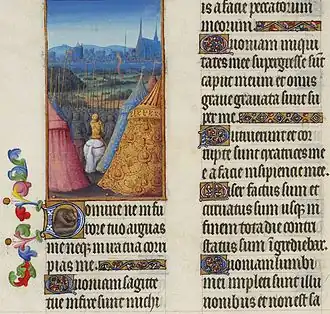 Domine ne in fu
rore tuo arguas
me neq in ira tua cor
ripias me.
Quoniam sagitte
tue infixe sunt michi
is a facie peccatorum
meorum.
Quoniam iniqui
tates mee supergresse sūt
caput meum et onus
graue grauata sunt su
per me.
Putruerunt et cor
rupte sunt cicatrices me
e a facie insipiencie mee.
Miser factus sum et
curuatus sum usq in
finem tota die contri
status sum ingrediebar.
Quoniam lumbi
mei impleti sunt illusi
onibus et non est sa